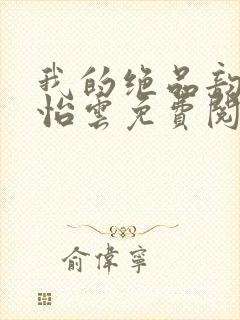 我的绝品
怡雲免費閱
俞偉寧